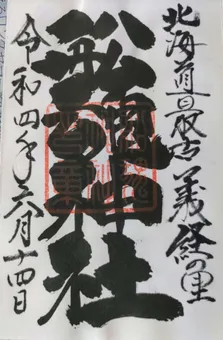 北海道最古義経の里
舩魂神社
令和四年六月十四日